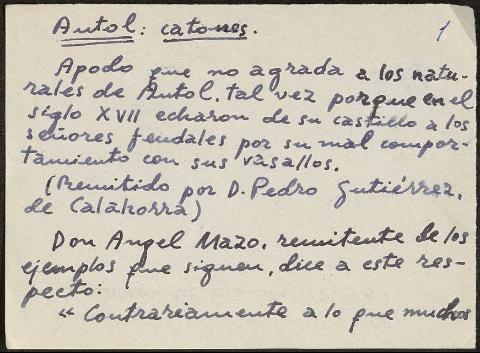 Autol: catones.
1
Apodo que no agrada a los natu-
rales de Autol, tal vez porque en el
siglo XVII echaron de su castillo a los
señores feudales por su mal compor-
tamiento con sus vasallos.
(Remitido por D. Pedro Gutiérrez,
de Calahorra)
Don Angel Mazo, remitente de los
ejemplos que siguen, dice a este res-
pecto:
"Contrariamente a lo que muchos